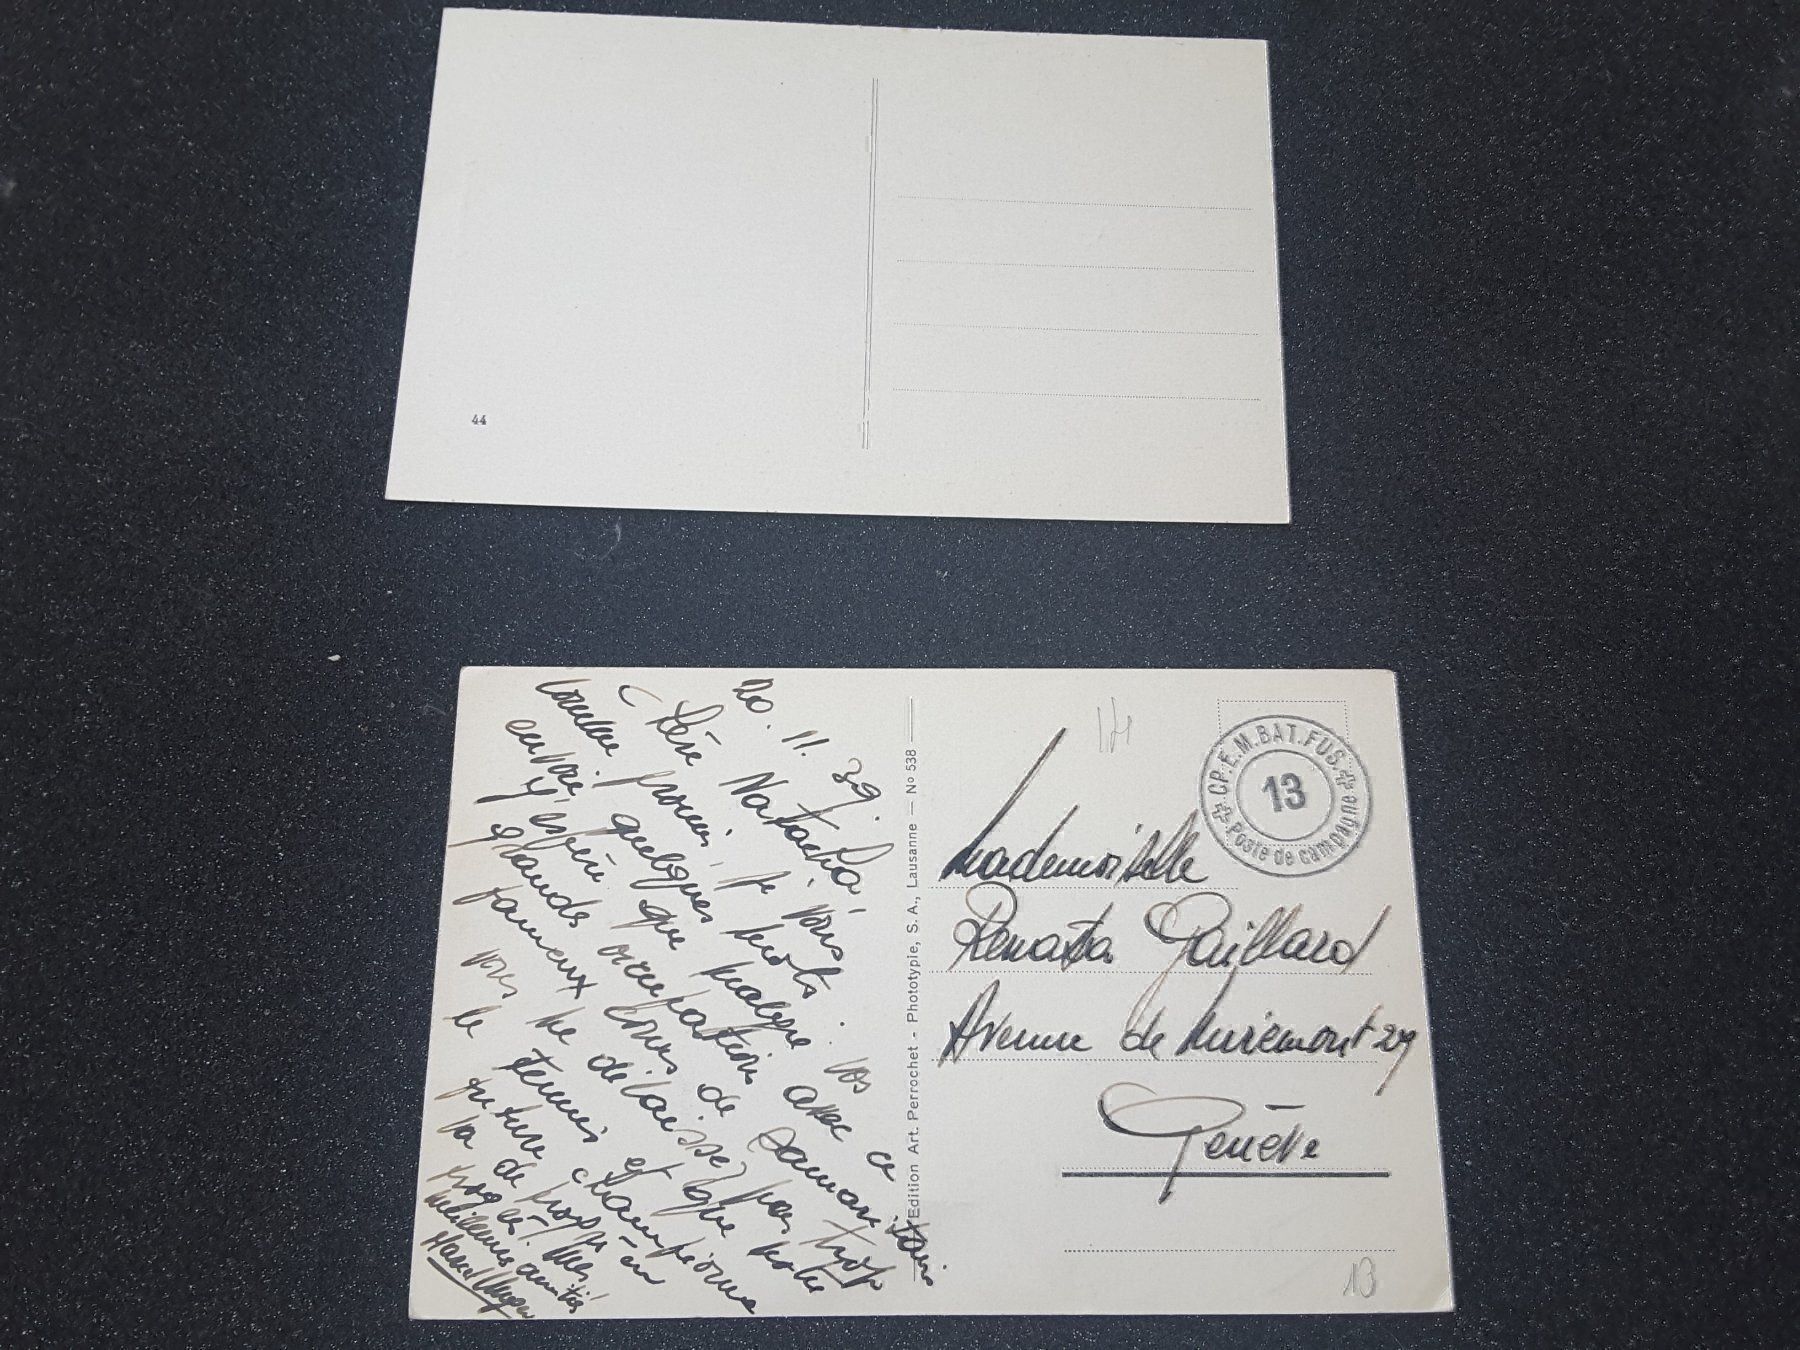 44
20. 11. 39.
Chère Natacha,
Comme promis, je vous
envoie quelques mots.
J'espère que malgré vos
grandes occupations avec ce
fameux cours de Samaritains
vous ne délaissez pas trop
le tennis et que notre
future championne
va de progrès en
progrès. Mes
meilleures amitiés
Edition Art. Perrochet - Phototypie, S. A., Lausanne — No 538
CP. E. M. BAT. FUS.
13
Poste de campagne
Mademoiselle
Renata Gaillard
Avenue de Miremont 29
Genève
13